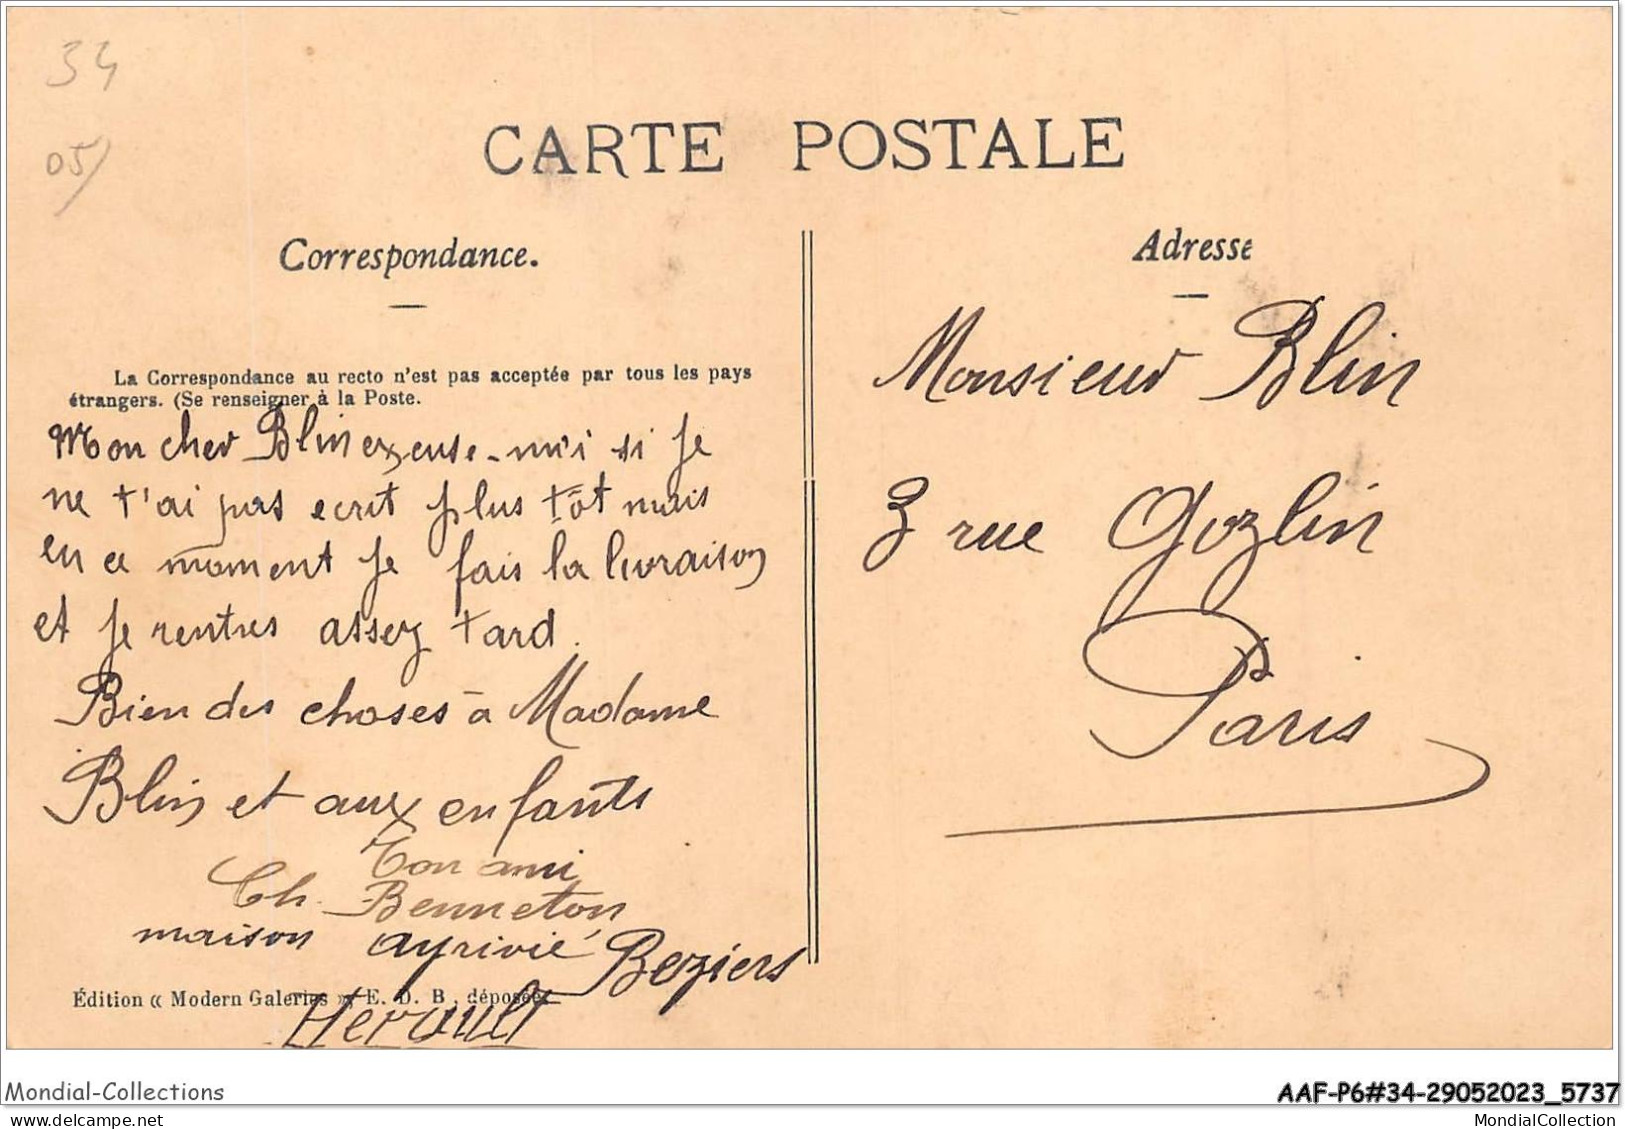 34
05/
CARTE POSTALE
Correspondance.
La Correspondance au recto n'est pas acceptée par tous les pays
étrangers. (Se renseigner à la Poste.
Mon cher Blin excuse-m'i si je
ne t'ai pas ecrit plus tôt mais
en ce moment je fais la livraison
et je rentres assez tard.
Bien des choses à Madame
Blin et aux enfants
Ton ami
Ch. Benneton
maison ayrivié Beziers
Édition « Modern Galeries » E. D. B, déposée.
Herault
Adresse
Monsieur Blin
3 rue Gozlin
Paris
Mondial-Collections
AAF-P6#34-29052023_5737
MondialCollection